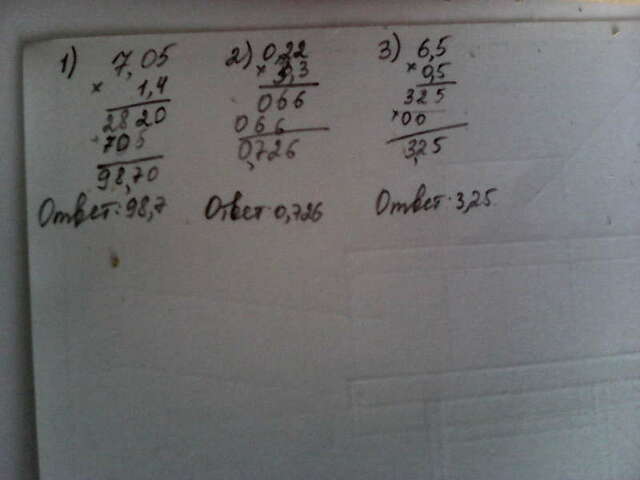 1) 7,05
× 1,4
2820
705
98,70
Ответ: 98,7
2) 0,22
× 3,3
066
066
0,726
Ответ: 0,726
3) 6,5
× 0,5
325
× 00
3,25
Ответ: 3,25